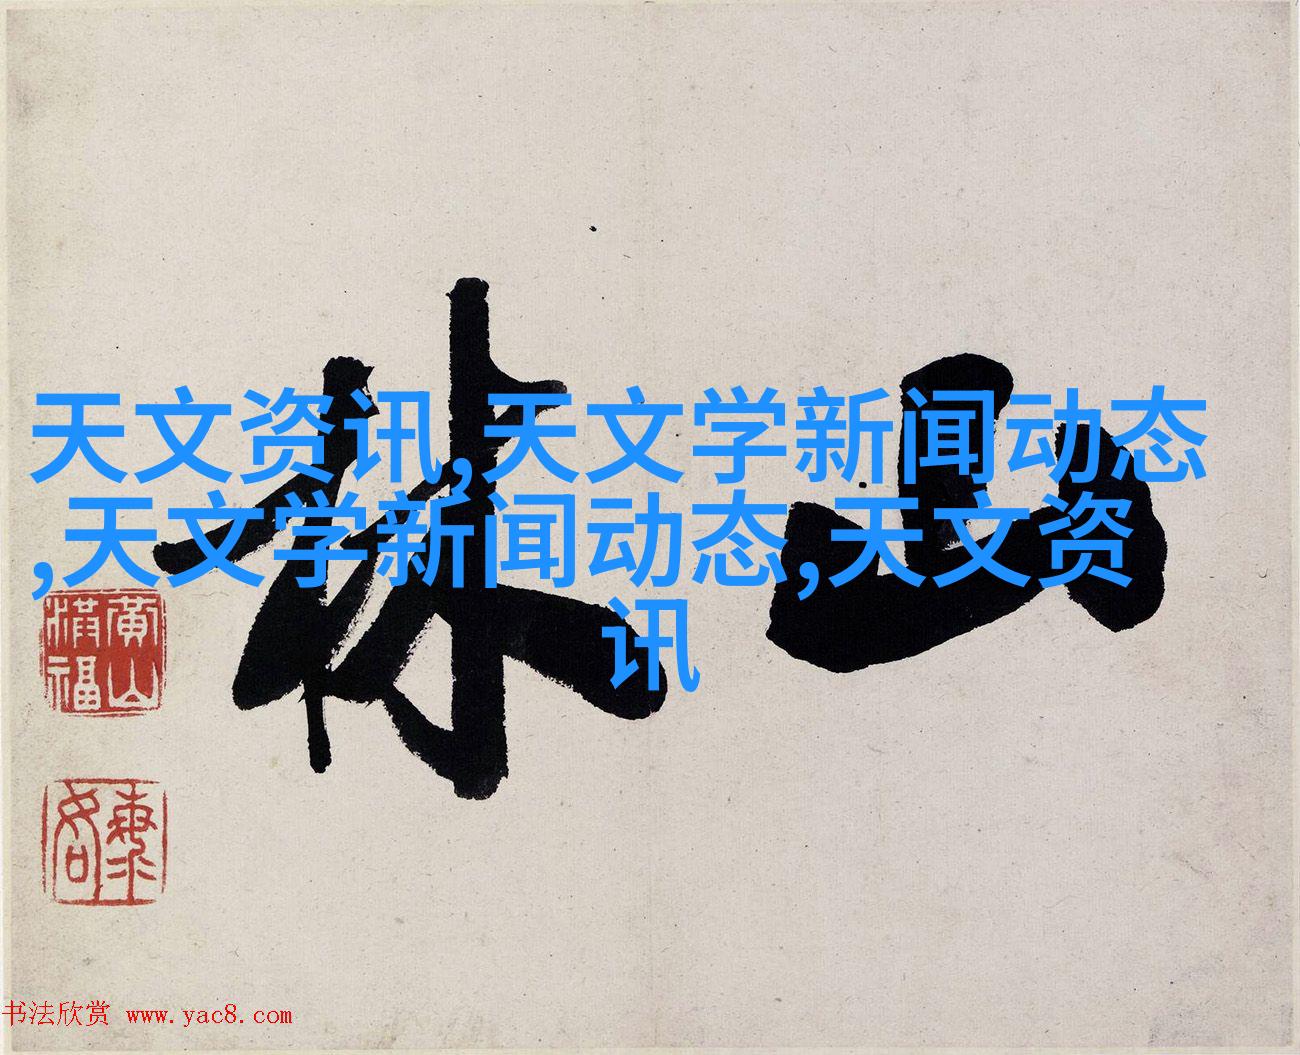 山林
天文资讯,天文学新闻动态
,天文学新闻动态,天文资
讯
书法欣赏 www.yac8.com